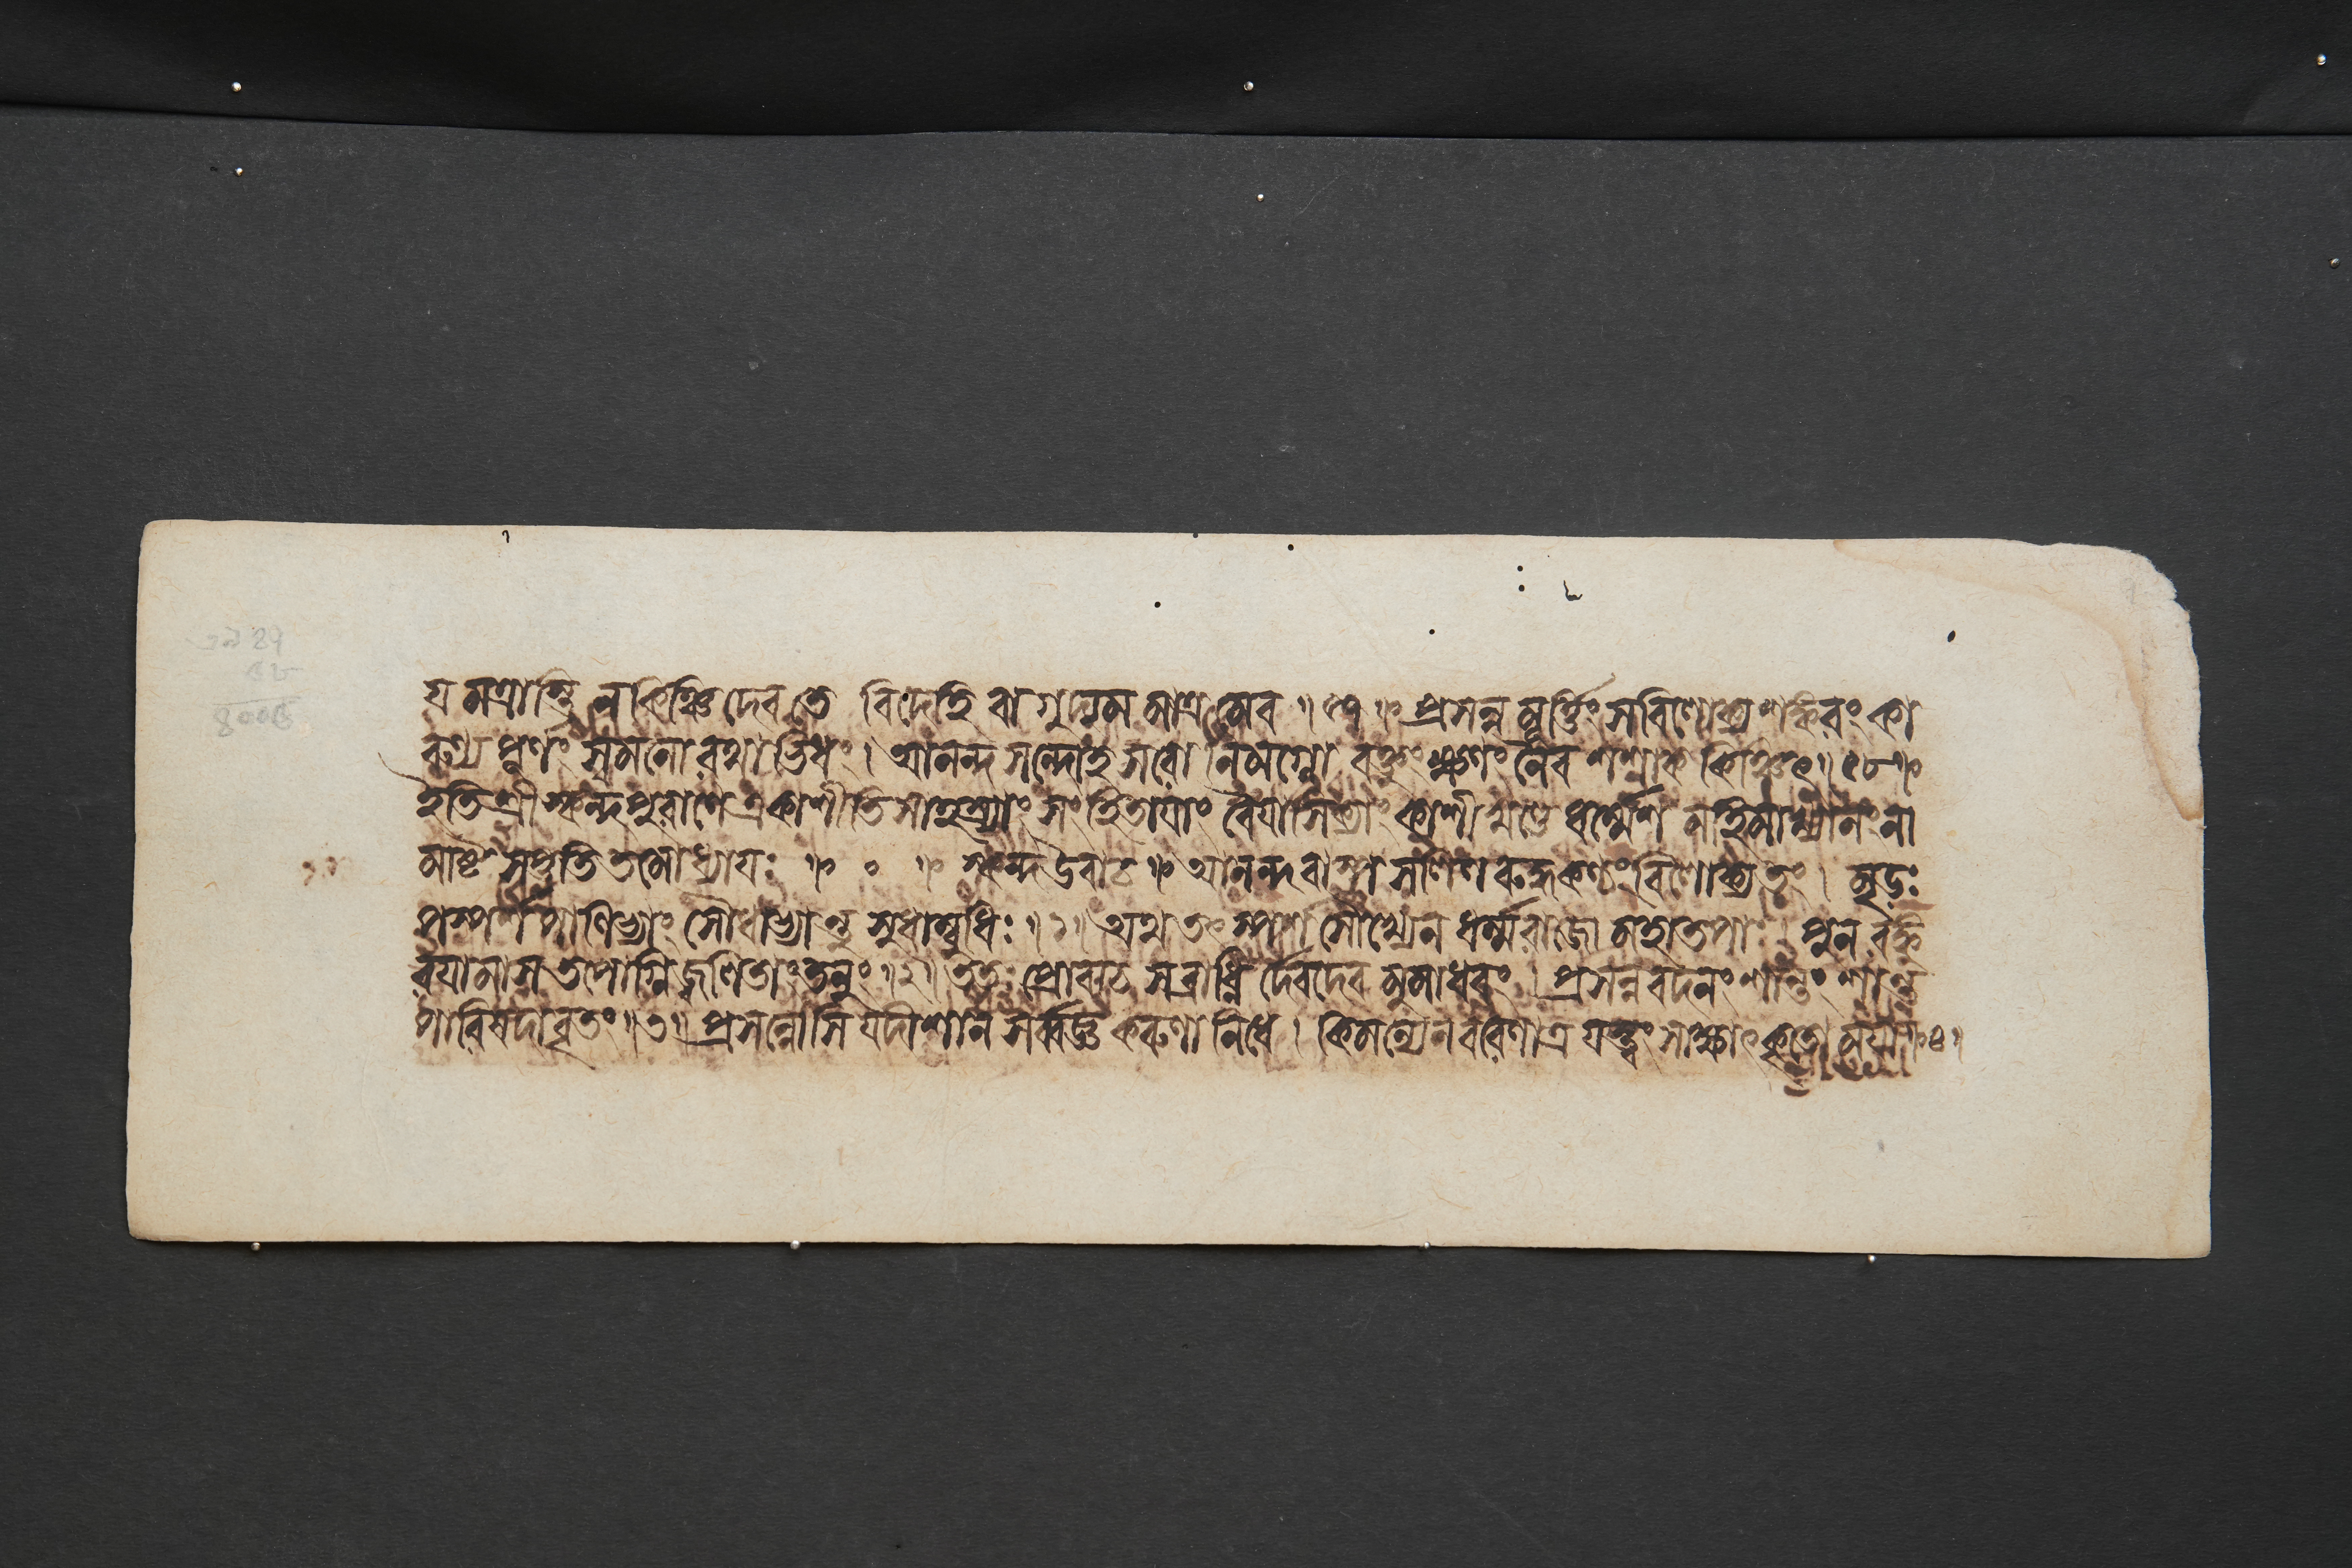 য মত্রাস্তি ন কিঞ্চিদেব তে বিদেহি বাগুদ্যম মাত্র মেব ॥ ৫৭ ॥ প্রসন্ন মূর্ত্তিং স বিলোক্য শঙ্করং কা
রুণ্য পূর্ণং স্বমনো রথাভিধং । আনন্দ সন্দোহ সরো নিমগ্নো বক্তুং ক্ষণং নৈব শশাক কিঞ্চিৎ ॥ ৫৮ ॥
ইতি শ্রীস্কন্দপুরাণে একাশীতি সাহস্র্যাং সংহিতাযাং বৈযাসিক্যাং কাশীখণ্ডে ধর্ম্মেশ মহিমাখ্যানং না
মাষ্ট সপ্ততি তমোধ্যাযঃ ॥ ० ॥ স্কন্দ উবাচ ॥ আনন্দবাষ্প সলিল রুদ্ধকণ্ঠং বিলোক্য তং । মৃডঃ
পস্পর্শ পাণিভ্যাং সৌধাভ্যান্তু সুধাম্বুধিঃ ॥ ১ ॥ অথ তৎ স্পর্শ সৌখ্যেন ধর্ম্মরাজো মহাতপাঃ । পুন রঙ্কু
রযামাস তপোগ্নি জ্বলিতাং তনুং ॥ ২ ॥ ততঃ প্রোবাচ স ব্রাধ্নি র্দেবদেব মুমাধবং । প্রসন্ন বদনং শান্তং শান্ত
পারিষদাবৃতং ॥ ৩ ॥ প্রসন্নোসি যদীশান সর্ব্বজ্ঞ করুণা নিধে । কিমন্যেন বরেণাত্র যত্ত্বং সাক্ষাৎ কৃতো মযা ॥ ৪ ॥